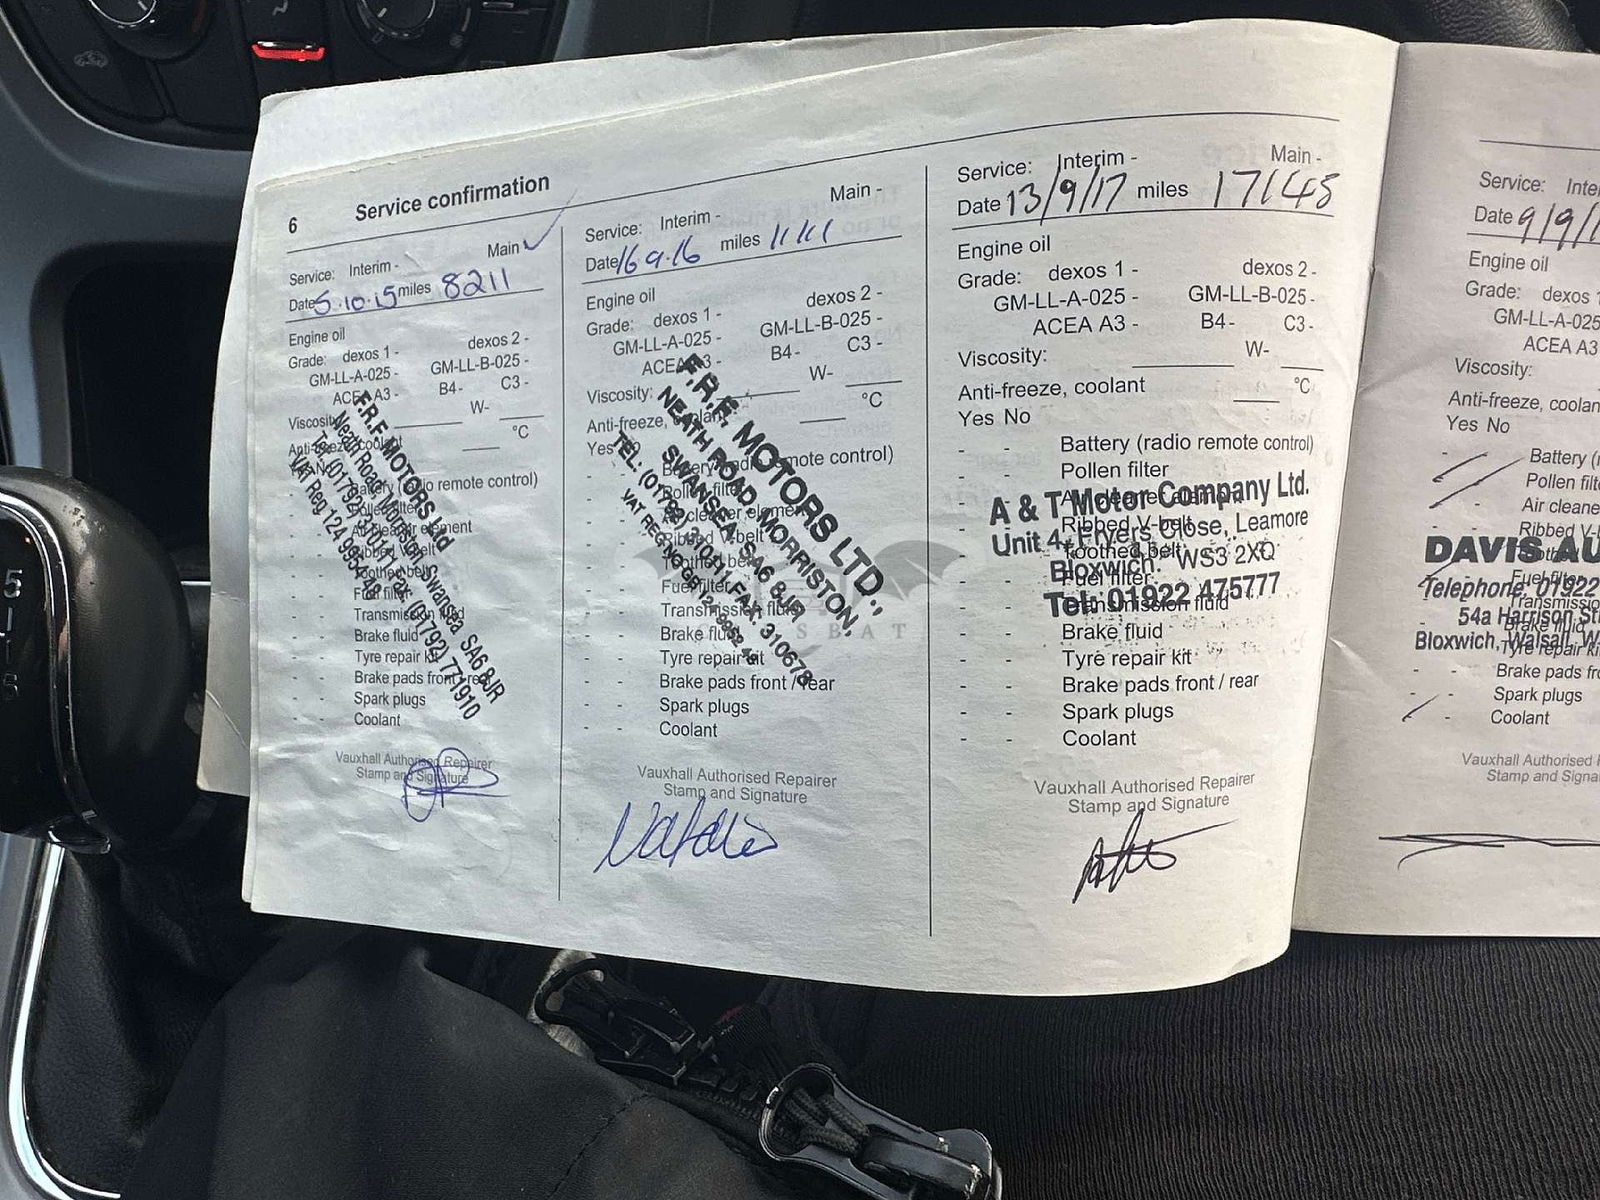 6 Service confirmation
Service: Interim - Main -
Date 5.10.15 miles 8211
Engine oil
Grade: dexos 1 - dexos 2 -
GM-LL-A-025 - GM-LL-B-025 -
ACEA A3 - B4 - C3 -
Viscosity W-
Anti-freeze, coolant °C
radio remote control)
Pollen filter
Air cleaner element
Ribbed V-belt
Toothed belt
Fuel filter
Transmission fluid
Brake fluid
Tyre repair kit
Brake pads front / rear
Spark plugs
Coolant
F.R.F MOTORS Ltd
Neath Road, Morriston, Swansea SA6 8JR
Tel: (01792) 310111 Fax: (01792) 771910
VAT Reg 124 9854
Vauxhall Authorised Repairer
Stamp and Signature
Service: Interim - Main -
Date 16.9.16 miles 11111
Engine oil
Grade: dexos 1 - dexos 2 -
GM-LL-A-025 - GM-LL-B-025 -
ACEA A3 - B4 - C3 -
Viscosity: W-
Anti-freeze, coolant °C
Yes No
Battery (radio remote control)
Pollen filter
Air cleaner element
Ribbed V-belt
Toothed belt
Fuel filter
Transmission fluid
Brake fluid
Tyre repair kit
Brake pads front / rear
Spark plugs
Coolant
F.R.F. MOTORS LTD.,
NEATH ROAD, MORRISTON,
SWANSEA, SA6 8JR
TEL: (01792) 310111 FAX: 310678
VAT REG NO GB 124
Vauxhall Authorised Repairer
Stamp and Signature
Service: Interim - Main -
Date 13/9/17 miles 17145
Engine oil
Grade: dexos 1 - dexos 2 -
GM-LL-A-025 - GM-LL-B-025 -
ACEA A3 - B4 - C3 -
Viscosity: W-
Anti-freeze, coolant °C
Yes No
- - Battery (radio remote control)
- - Pollen filter
Air cleaner element
Ribbed V-belt
Toothed belt
Fuel filter
Transmission fluid
- - Brake fluid
- - Tyre repair kit
- - Brake pads front / rear
- - Spark plugs
- - Coolant
A & T Motor Company Ltd.
Unit 4, Fryers Close, Leamore
Bloxwich. WS3 2XQ
Tel: 01922 475777
Vauxhall Authorised Repairer
Stamp and Signature
Service: Inte
Date 9/9/1
Engine oil
Grade: dexos 1
GM-LL-A-025
ACEA A3
Viscosity:
Anti-freeze, coolan
Yes No
Battery (r
Pollen filte
Air cleane
Ribbed V-b
Fuel filter
Transmissio
Brake fluid
Tyre repair ki
Brake pads fro
Spark plugs
Coolant
DAVIS AU
Telephone, 01922
54a Harrison St
Bloxwich, Walsall, W
Vauxhall Authorised Repa
Stamp and Signa
5